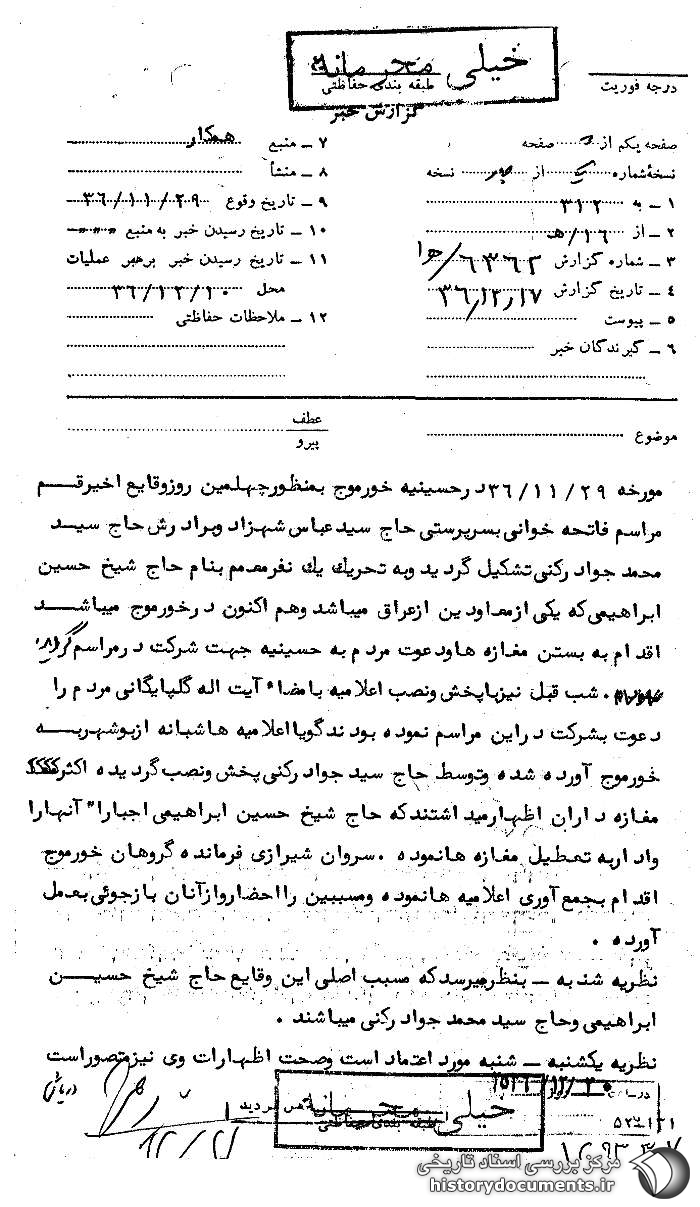 خیلی محرمانه
طبقه بندی حفاظتی
درجه فوریت
گزارش خبر
صفحه یکم از صفحه
نسخهٔ شماره از نسخه
۱ ـ به ۳۱۲
۲ ـ از ۱۶/هـ
۳ ـ شماره گزارش ۶۳۶۲/
۴ ـ تاریخ گزارش ۳۶/۱۲/۱۷
۵ ـ پیوست
۶ ـ گیرندگان خبر
۷ ـ منبع همکار
۸ ـ منشأ
۹ ـ تاریخ وقوع ۳۶/۱۱/۲۹
۱۰ ـ تاریخ رسیدن خبر به منبع
۱۱ ـ تاریخ رسیدن خبر برهبر عملیات
محل ۳۶/۱۲/۱۰
۱۲ ـ ملاحظات حفاظتی
موضوع
عطف
پیرو
مورخه ۳۶/۱۱/۲۹ در حسینیه خورموج بمنظور چهلمین روز وقایع اخیر قم
مراسم فاتحه خوانی بسرپرستی حاج سید عباس شهزاد وبرادرش حاج سید
محمد جواد رکنی تشکیل گردید وبه تحریك یك نفر معمم بنام حاج شیخ حسین
ابراهیمی که یکی از معاودین از عراق میباشد وهم اکنون در خورموج میباشد
اقدام به بستن مغازه ها ودعوت مردم به حسینیه جهت شرکت در مراسم
. شب قبل نیز با پخش ونصب اعلامیه با مضاء آیت اله گلپایگانی مردم را
دعوت بشرکت در این مراسم نموده بودند گویا اعلامیه ها شبانه از بوشهر به
خورموج آورده شده وتوسط حاج سید جواد رکنی پخش ونصب گردیده اکثر
مغازه داران اظهار میداشتند که حاج شیخ حسین ابراهیمی اجبارا" آنها را
وادار به تعطیل مغازه ها نموده . سروان شیرازی فرمانده گروهان خورموج
اقدام بجمع آوری اعلامیه ها نموده ومسببین را احضار واز آنان بازجوئی بعمل
آورده .
نظریه شنبه ـ بنظر میرسد که مسبب اصلی این وقایع حاج شیخ حسین
ابراهیمی وحاج سید محمد جواد رکنی میباشند .
نظریه یکشنبه ـ شنبه مورد اعتماد است وصحت اظهارات وی نیز متصور است
خیلی محرمانه
طبقه بندی حفاظتی
مرکز بررسی اسناد تاریخی
historydocuments.ir